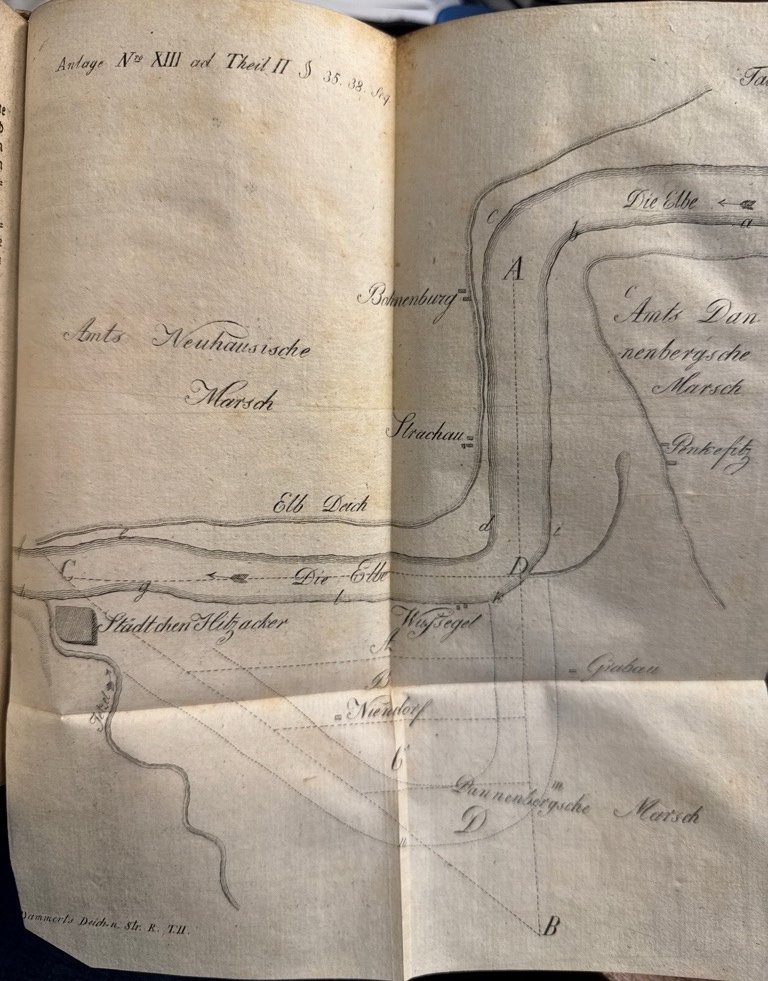 Anlage Nro XIII ad Theil II § 35. 38. Seq
Die Elbe
a
c
b
A
Bohnenburg
Amts Dan-
nenbergsche
Marsch
Amts Neuhausische
Marsch
Strachau
Penkefitz
Elb Deich
d
i
e
f
C
D
g
Die Elbe
h
l
k
Städtchen Hitzacker
Wussegel
A
Grabau
B
Jetze
Niendorf
C
m
Dannenbergsche Marsch
D
n
B
Dammerts Deich u. Str. R. T.II.